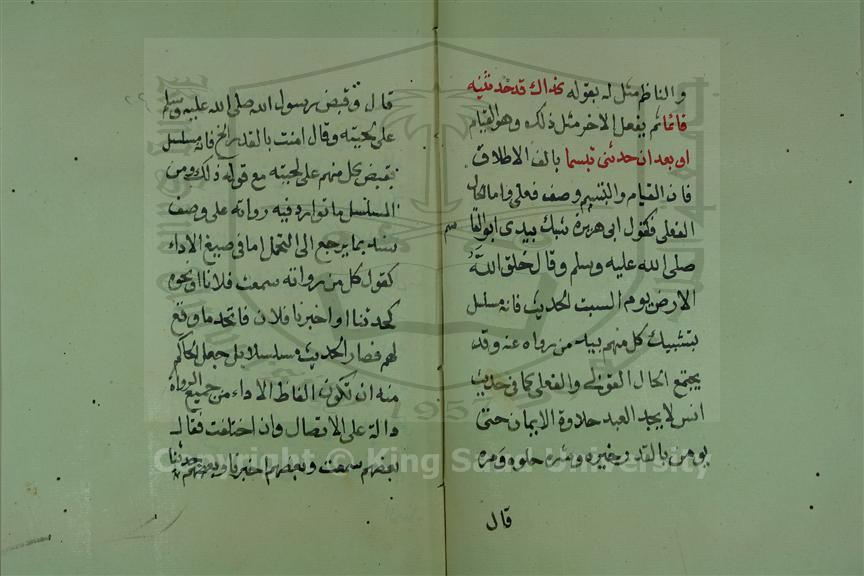 والناظم مثل له بقوله كذاك قد حدثنيه
قائما ثم يفعل الآخر مثل ذلك وهو القيام
او بعد ان حدثني تبسما بالف الاطلاق
فان القيام والتبسم وصف فعلي واما الحال
الفعلى فكقول ابى هريرة شبك بيدى ابو القا
سم
صلى الله عليه وسلم وقال خلق الله
الارض يوم السبت الحديث فانه مسلسل
بتشبيك كل منهم بيد من رواه عنه وقد
يجتمع الحال القولى والفعلى كما فى حديث
انس لا يجد العبد حلاوة الايمان حتى
يومن بالقدر خيره وشره حلوه ومره
قال
قال وقبض رسول الله صلى الله عليه وسلم
على لحيته وقال امنت بالقدر الخ فانه مسلسل
بقبض كل منهم على لحيته مع قوله ذلك ومن
المسلسل ما توارد فيه رواته على وصف
سند بما يرجع الى التحمل اما فى صيغ الاداء
كقول كل من رواته سمعت فلانا او نحوه
كحدثنا او اخبرنا فلان فاتحد ما وقع
لهم فصار الحديث مسلسلا بل جعل الحاكم
منه ان تكون الفاظ الاداء من جميع الرواة
دالة على الاتصال وان اختلفت فقال
بعضهم سمعت وبعضهم اخبرنا وبعضهم حدثنا
Copyright © King Saud University
1957